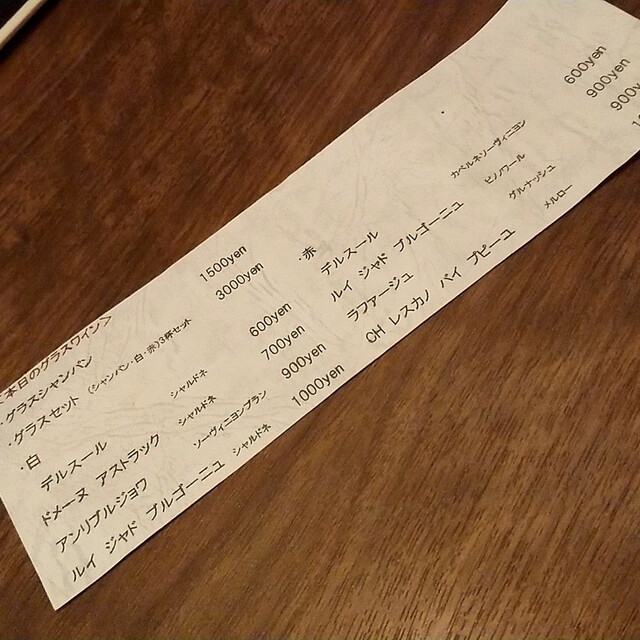 本日のグラスワイン＞
・グラスシャンパン 1500yen
・グラスセット (シャンパン・白・赤)3杯セット 3000yen
・白
デルスール シャルドネ 600yen
ドメーヌ アストラック シャルドネ 700yen
アンリブルジョワ ソーヴィニヨンブラン 900yen
ルイ ジャド ブルゴーニュ シャルドネ 1000yen
・赤
デルスール カベルネソーヴィニヨン 600yen
ルイ ジャド ブルゴーニュ ピノノワール 900yen
ラファージュ グルナッシュ 900y
CH レスカノ バイ プピーユ メルロー